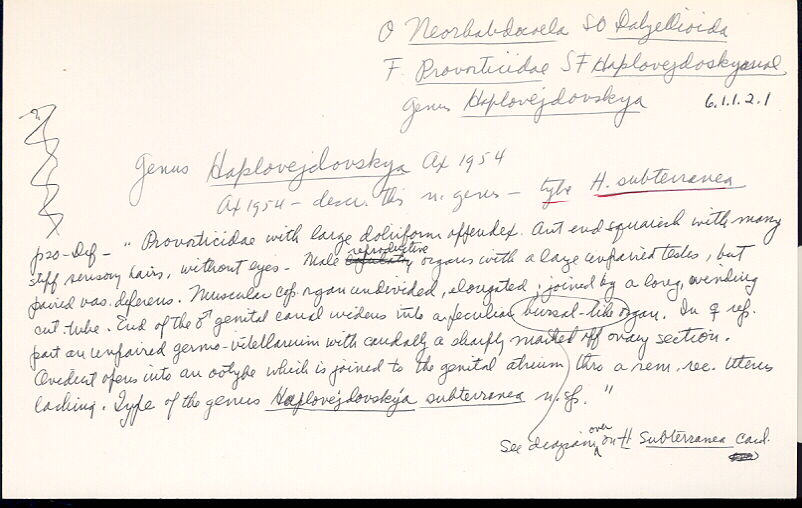 O Neorhabdocoela SO Dalyellioida
F. Provorticidae SF Haplovejdoskyanae
Genus Haplovejdovskya 6.1.1.2.1
Genus Haplovejdovskya Ax 1954
Ax 1954 - descr. this n. genus - type H. subterranea
p20 - Def - " Provorticidae with large doliiform pharynx. Ant end squarish with many
stiff sensory hairs, without eyes - Male reproductive organs with a large unpaired testes, but
paired vas. deferens. Muscular cop. organ undivided, elongated; joined by a long, winding
cut. tube. End of the ♂ genital canal widens into a peculiar bursal-like organ. In ♀ rep.
part an unpaired germo-vitellarium with caudally a sharply marked off ovary section.
Oviduct opens into an ootype which is joined to the genital atrium thro a sem. rec. Uterus
lacking. Type of the genus Haplovejdovskya subterranea n. sp. "
See diagram over on H Subterranea card.